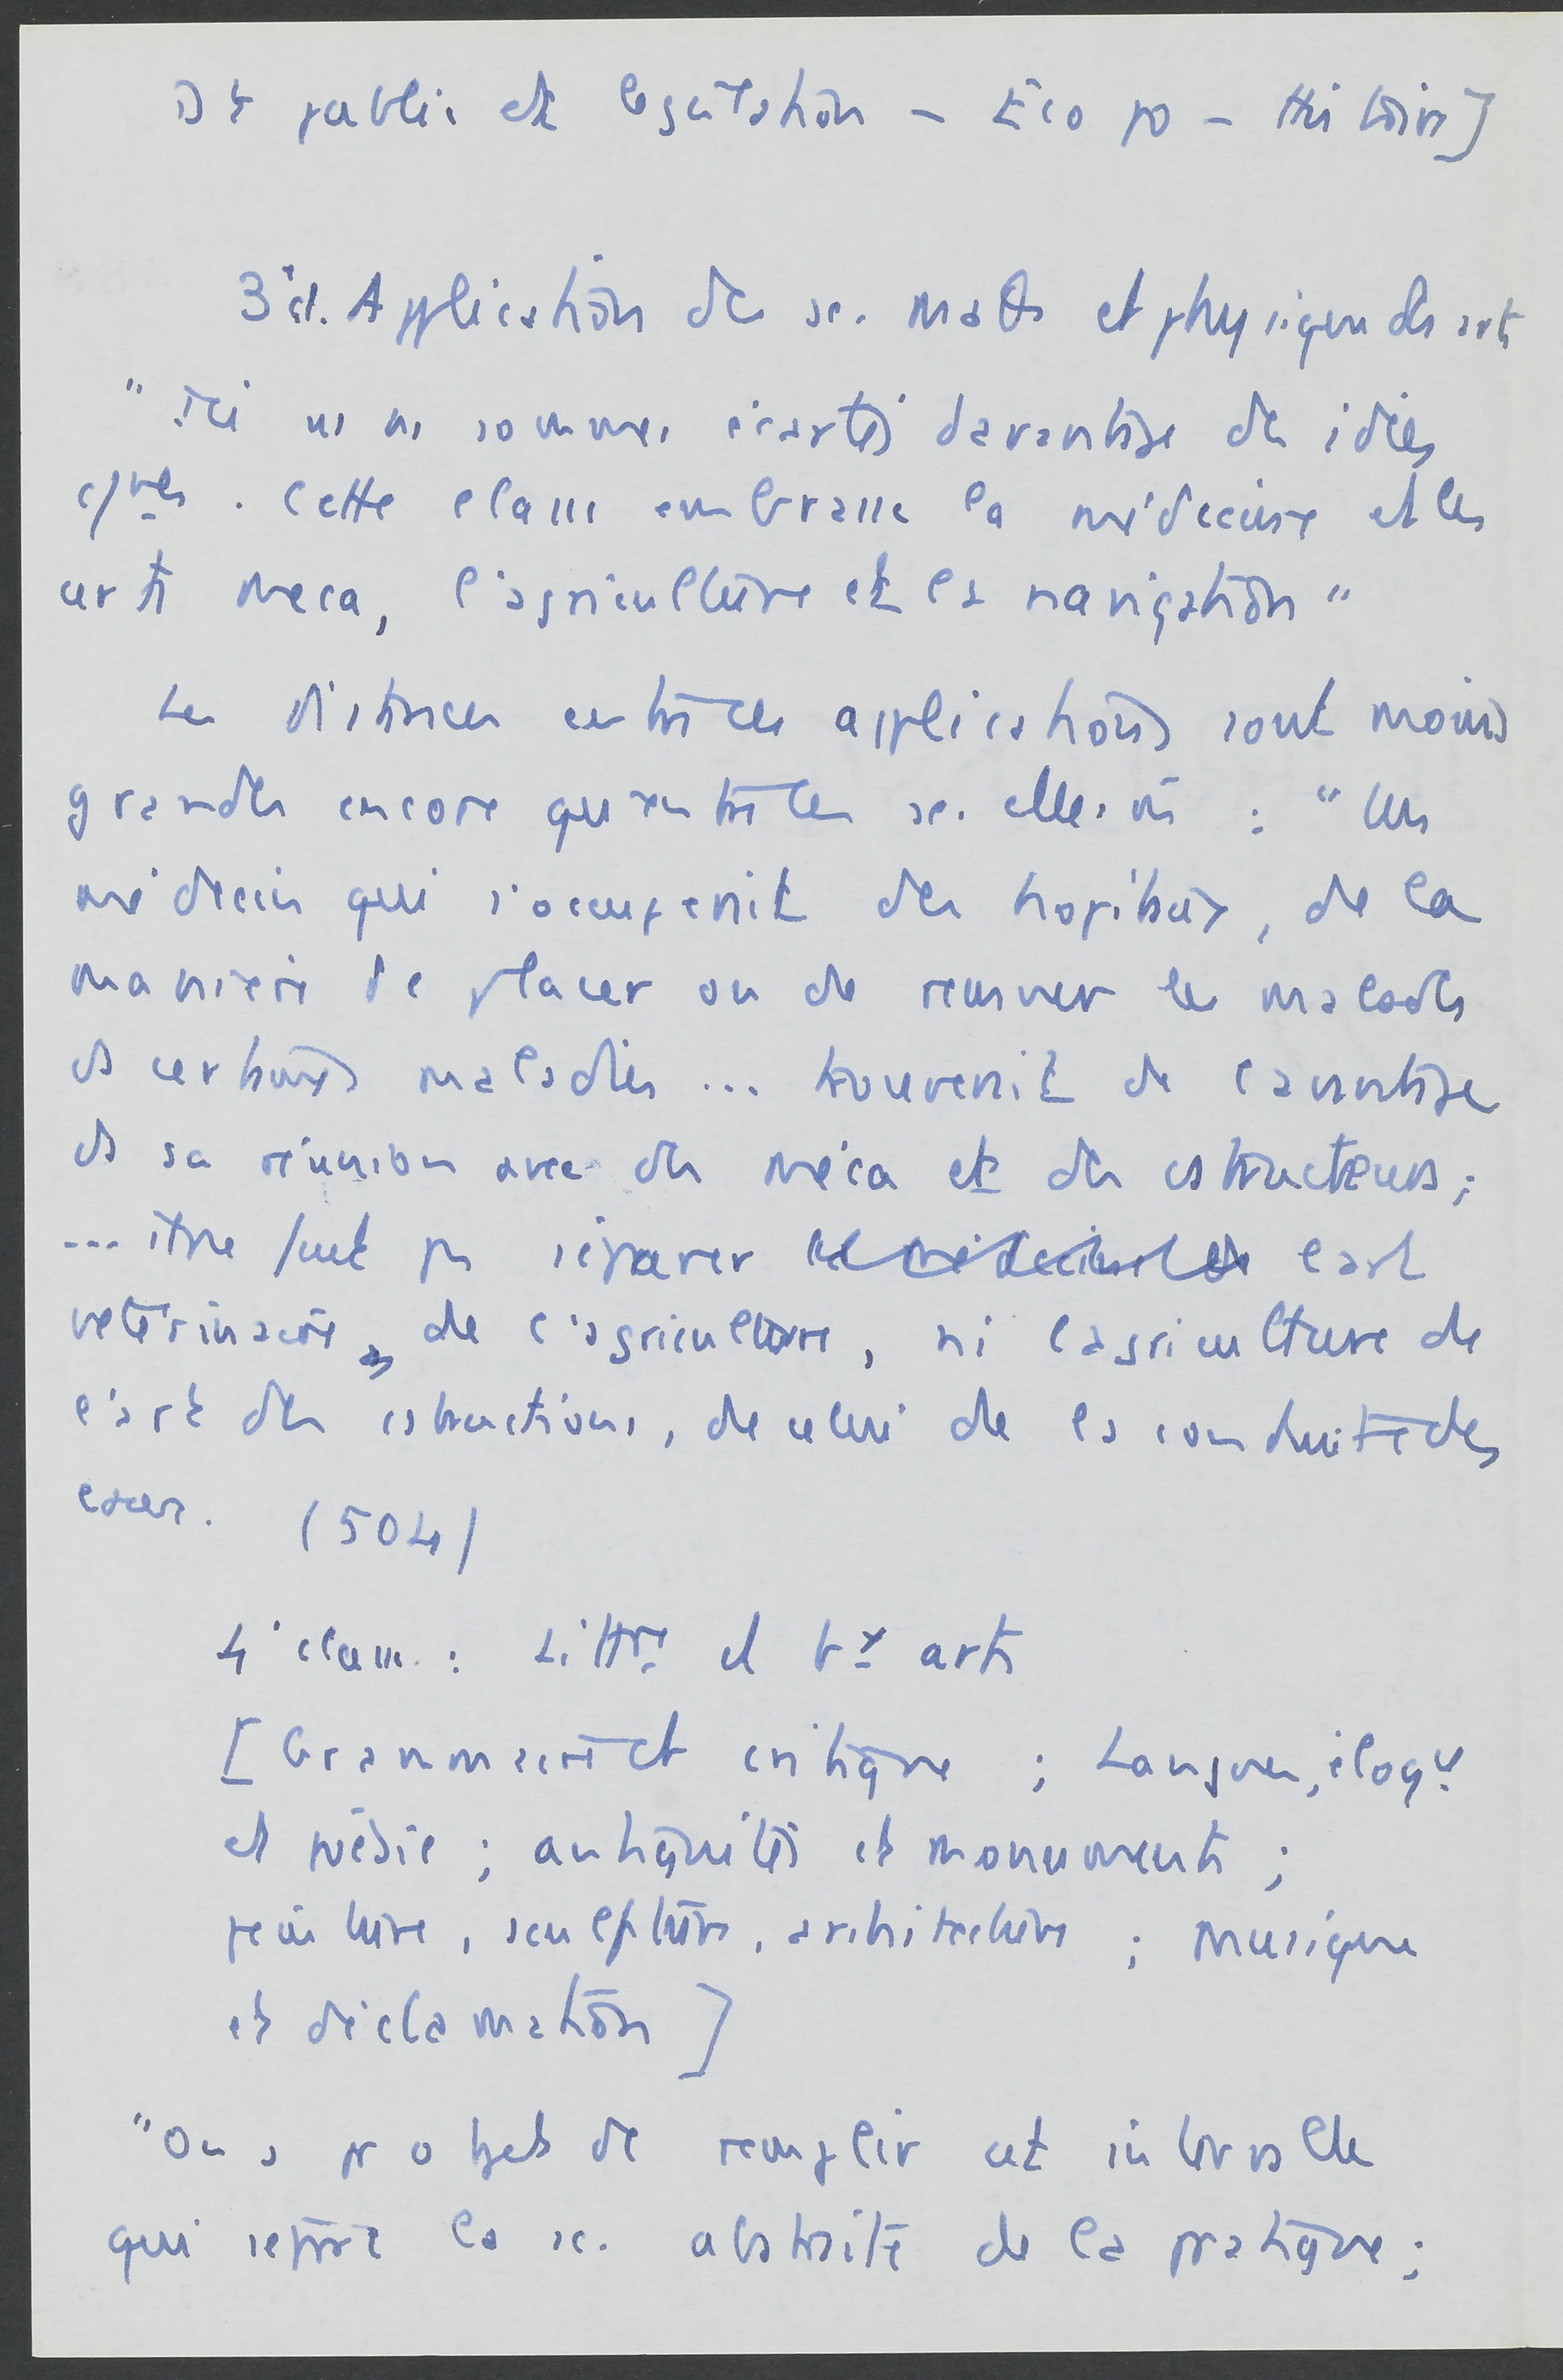 Dt public et législation - Éco po - Histoire]
3e cl. Application des sc. maths et physiques des arts
"Ici ns ns sommes écartés davantage des idées
Cette classe embrasse la médecine et les
arts méca, l'agriculture et la navigation"
Les distances entre ces applications sont moins
grandes encore qu'entre les sc. elles m̄ : "Un
médecin qui s'occuperait des hôpitaux, de la
manière de placer ou de remuer les malades
ds certaines maladies ... trouverait de l'avantage
ds sa réunion avec des méca et des cstructeurs ;
... séparer l'art
vétérinaire de l'agriculture, ni l'agriculture de
l'art des cstructions, de celui de la conduite des
eaux. (504)
4e classe : Littre et bx arts
[Grammaire et critique ; Langues, éloqu
et poésie ; antiquités et monuments ;
peinture, sculpture, architecture ; musique
et déclamation]
"On a pr objet de remplir cet intervalle
qui sépare la sc. abstraite de la pratique ;